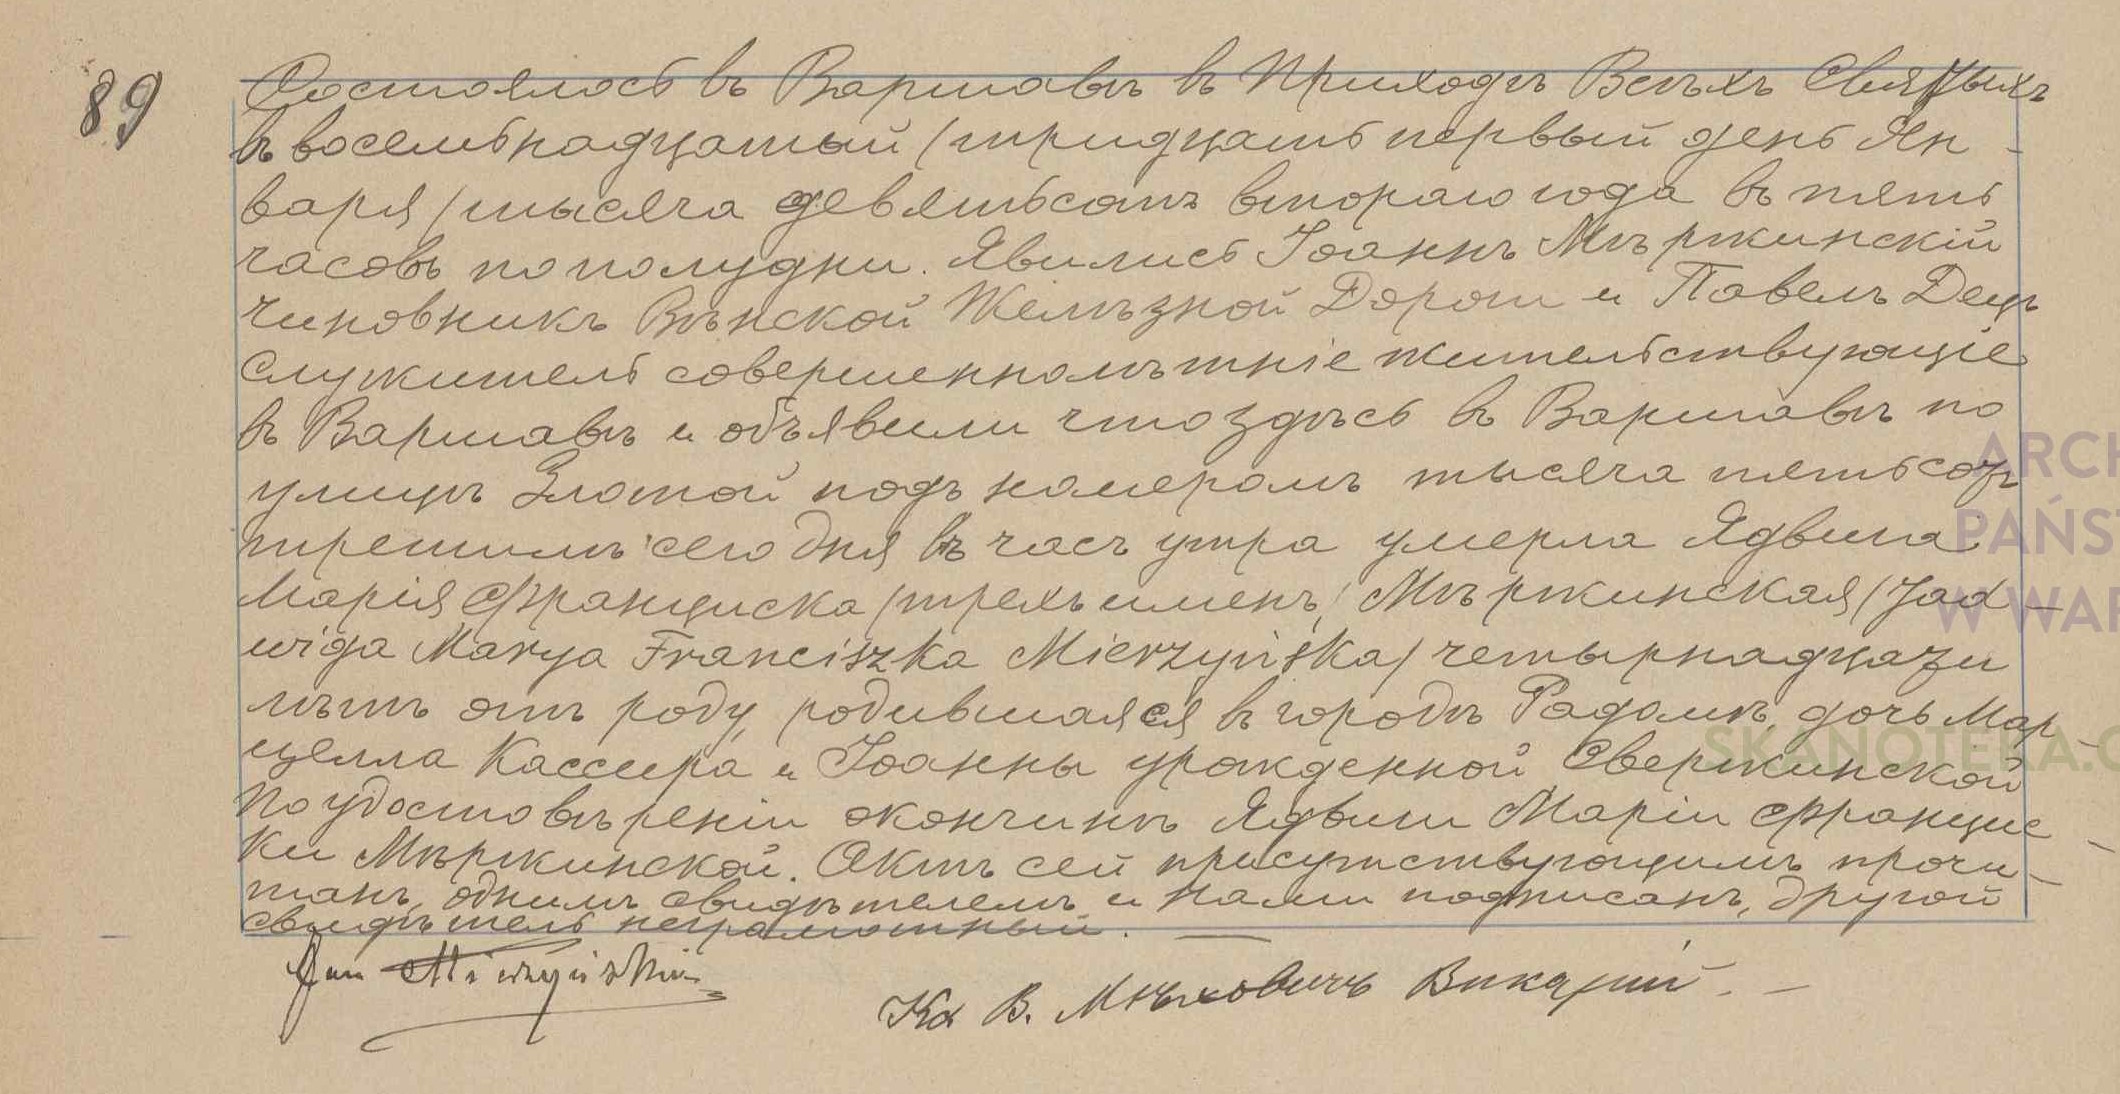 89
Состоялось въ Варшавѣ въ Приходѣ Всѣхъ Святыхъ
въ восемьнадцатый /тридцать первый день Ян-
варя/тысяча девятьсотъ втораго года въ пять
часовъ по полудни. Явились Іоаннъ Мѣржинскій
чиновникъ Вѣнской Желѣзной Дороги и Павелъ Децъ
служитель совершеннолѣтніе жительствующіе
въ Варшавѣ и объявили что здѣсь въ Варшавѣ по
улицѣ Златой подъ номеромъ тысяча пятьсотъ
третьимъ сего дня въ часъ утра умерла Ядвига
Марія Франциска /трехъ именъ/ Мѣржинская /Jad-
wiga Marya Franciszka Mierzyńska/ четырнадцати
лѣтъ отъ роду, родившаяся въ городѣ Радомѣ, дочь Мар-
целла Кассира и Іоанны урожденной Свержинской
По удостовѣреніи окончинѣ Ядвиги Маріи Францис-
ки Мѣржинской. Актъ сей присутствующимъ прочи-
танъ, однимъ свидѣтелемъ и Нами подписанъ, другой
свидѣтель неграмотный.
Jan Mierzyński
Кс В. Мѣховичъ Викарій
ARCH
PAŃST
W WAR
SKANOTEKA.G